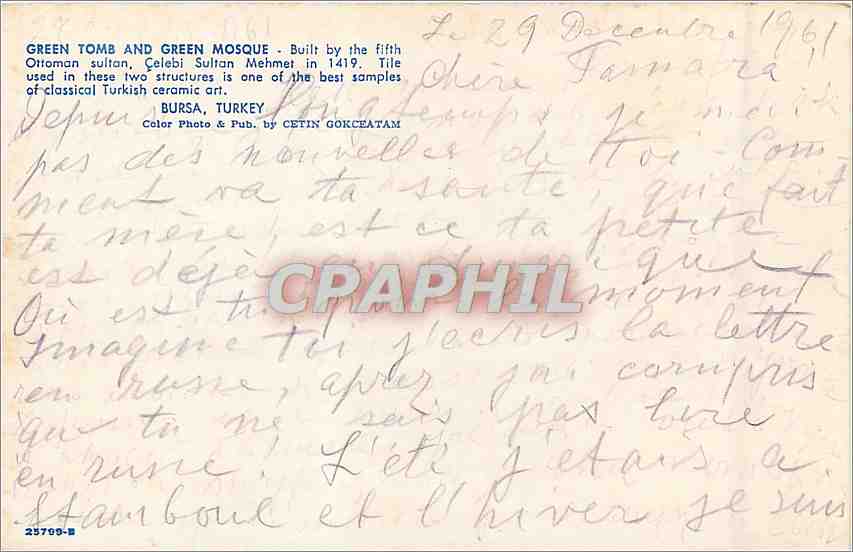 Le 29 Decembre 1961
GREEN TOMB AND GREEN MOSQUE - Built by the fifth
Ottoman sultan, Çelebi Sultan Mehmet in 1419. Tile
used in these two structures is one of the best samples
of classical Turkish ceramic art.
BURSA, TURKEY
Color Photo & Pub. by CETIN GOKCEATAM
Chère Tamara
Depuis longtemps je n'ai
pas des nouvelles de toi. Com-
ment va ta santé, que fait
ta mère, est ce ta petite
est déjà que
Où est tu moment
Imagine toi j'ecris la lettre
en russe, aprez j'ai compris
que tu ne sais pas lire
en russe. L'été j'etais a
Stamboul et l'hiver je suis
CPAPHIL
25799-B